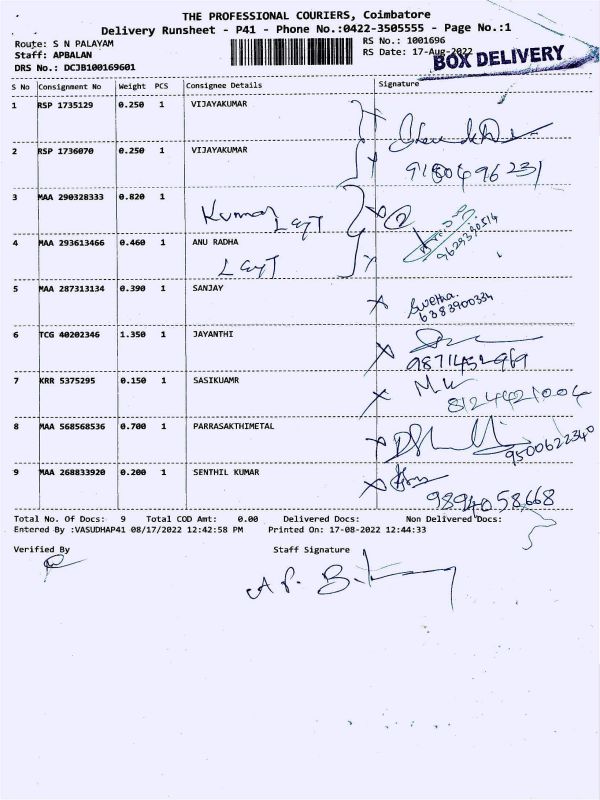 THE PROFESSIONAL COURIERS, Coimbatore
Delivery Runsheet - P41 - Phone No.:0422-3505555 - Page No.:1
Route: S N PALAYAM RS No.: 1001696
Staff: APBALAN RS Date: 17-Aug-2022
BOX DELIVERY
DRS No.: DCJB100169601
S No Consignment No Weight PCS Consignee Details Signature
1 RSP 1735129 0.250 1 VIJAYAKUMAR
2 RSP 1736070 0.250 1 VIJAYAKUMAR
3 MAA 290328333 0.820 1
Kumar
4 MAA 293613466 0.460 1 ANU RADHA
9629390514
5 MAA 287313134 0.390 1 SANJAY
Swetha.
6383900334
6 TCG 40202346 1.350 1 JAYANTHI
7 KRR 5375295 0.150 1 SASIKUAMR
8124421004
8 MAA 568568536 0.700 1 PARRASAKTHIMETAL
9500622340
9 MAA 268833920 0.200 1 SENTHIL KUMAR
9894058668
Total No. Of Docs: 9 Total COD Amt: 0.00 Delivered Docs: Non Delivered Docs:
Entered By :VASUDHAP41 08/17/2022 12:42:58 PM Printed On: 17-08-2022 12:44:33
Verified By Staff Signature